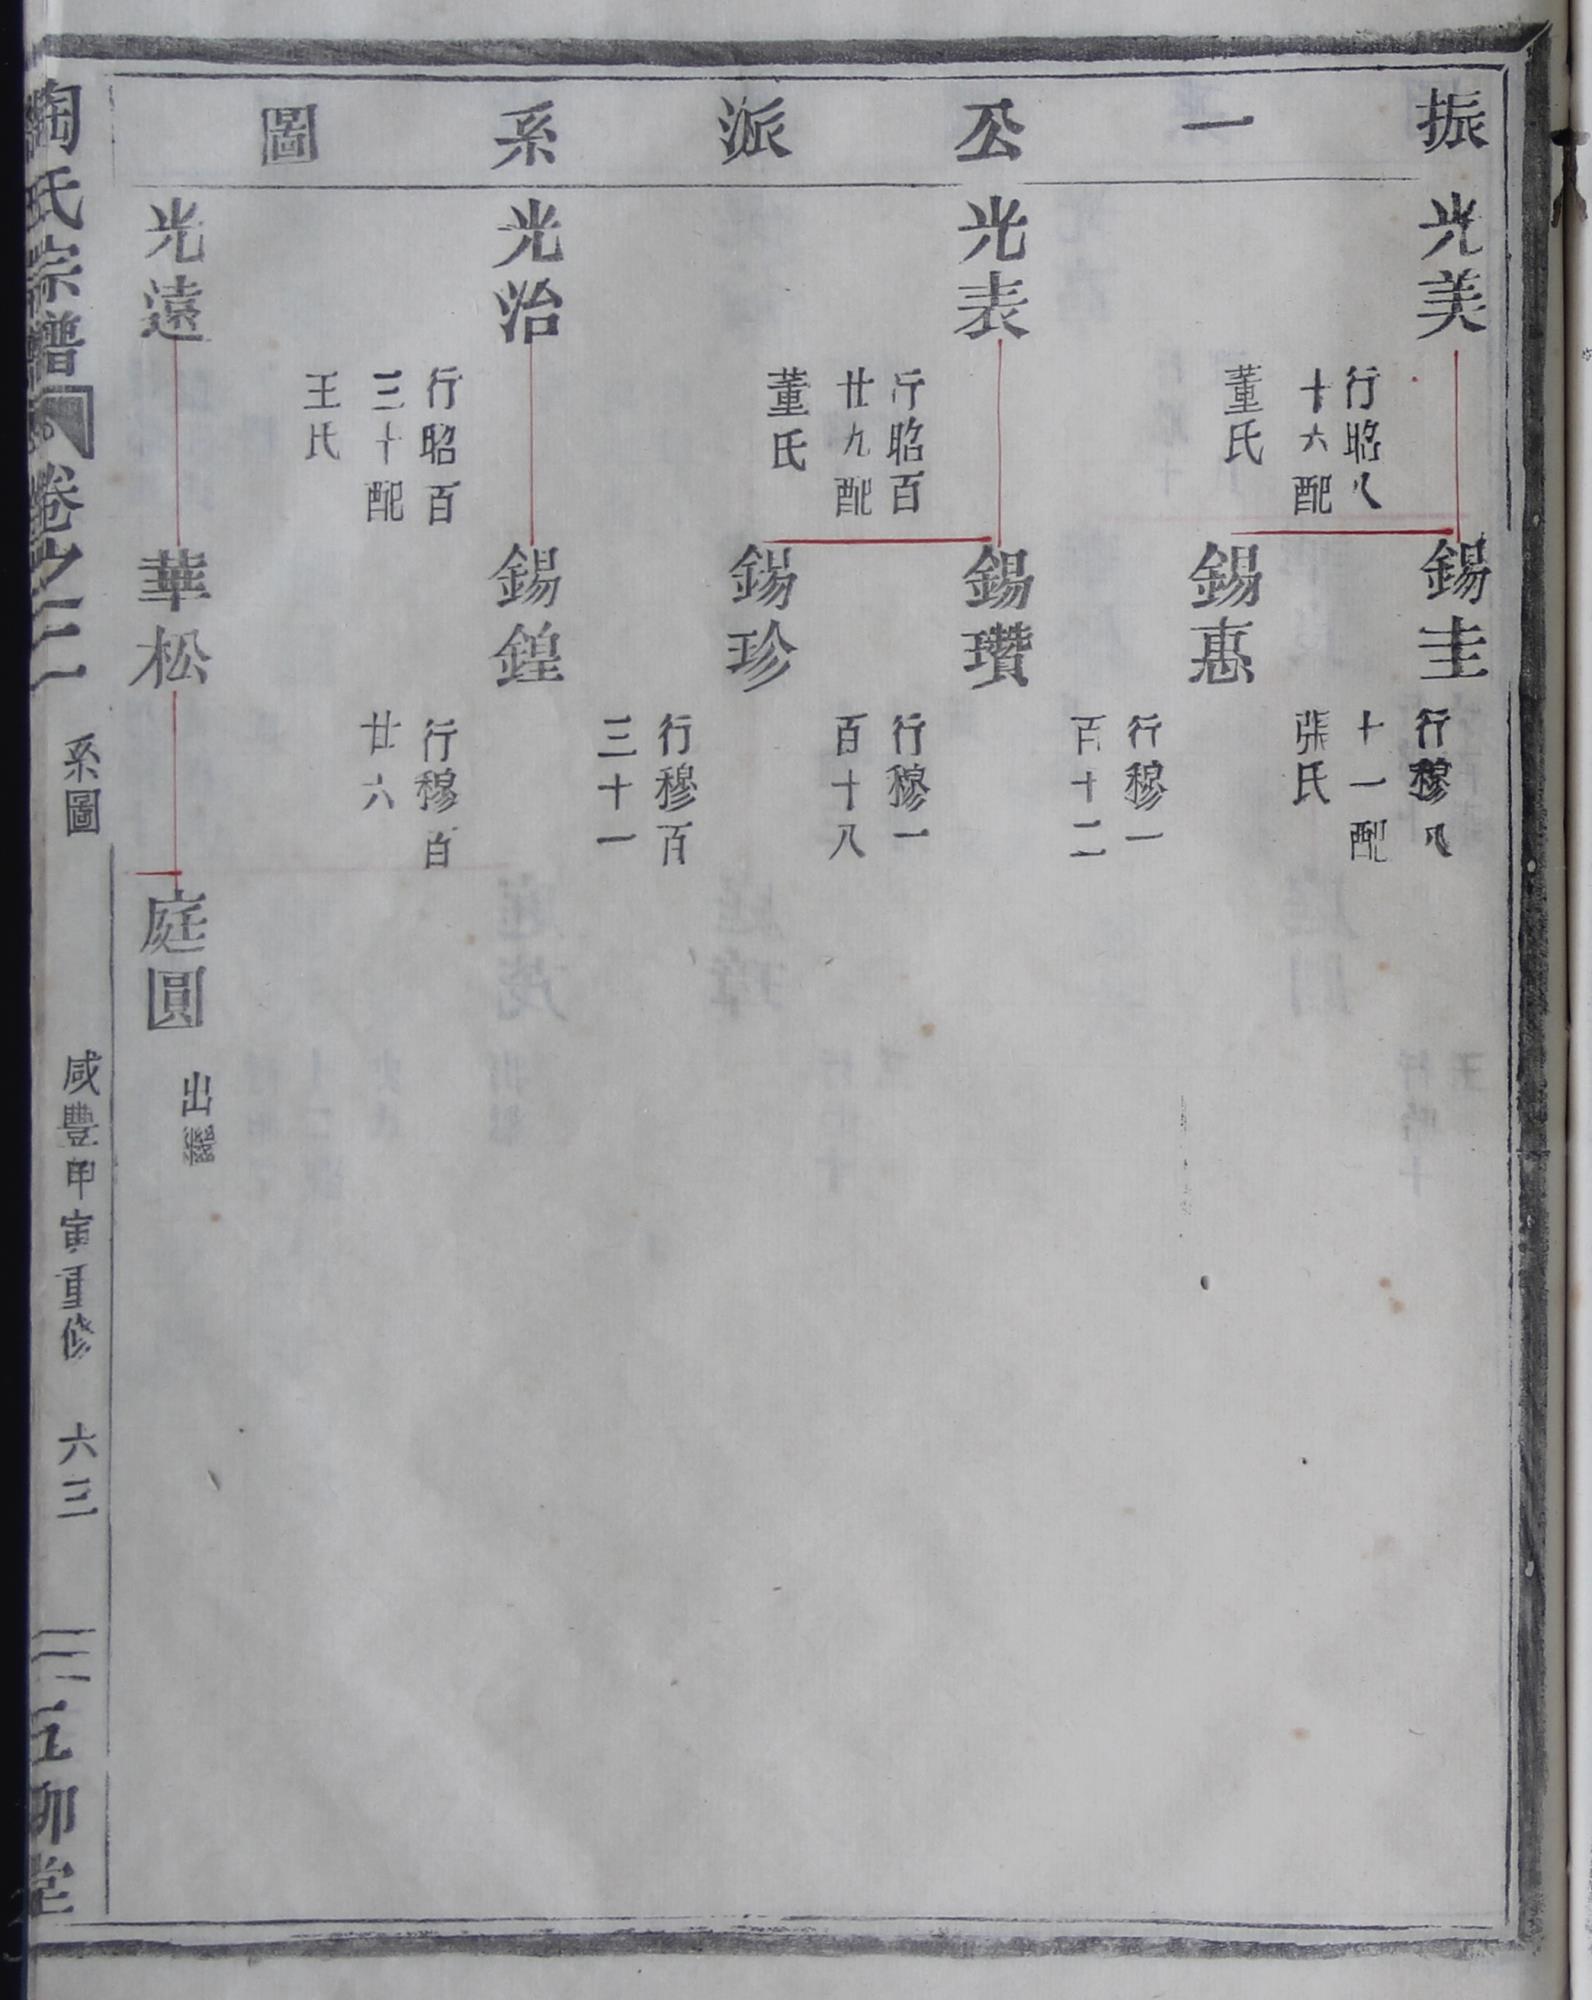 振一公派系圖
光美
行昭八
十六配
董氏
光表
行昭百
廿九配
董氏
光治
行昭百
三十配
王氏
光遠
錫圭
行穆八
十一配
張氏
錫惠
行穆一
百十二
錫瓚
行穆一
百十八
錫珍
行穆百
三十一
錫鍠
行穆百
廿六
華松
庭圓
出繼
陶氏宗譜
卷之二
系圖
咸豐甲寅重修
六三
五柳堂